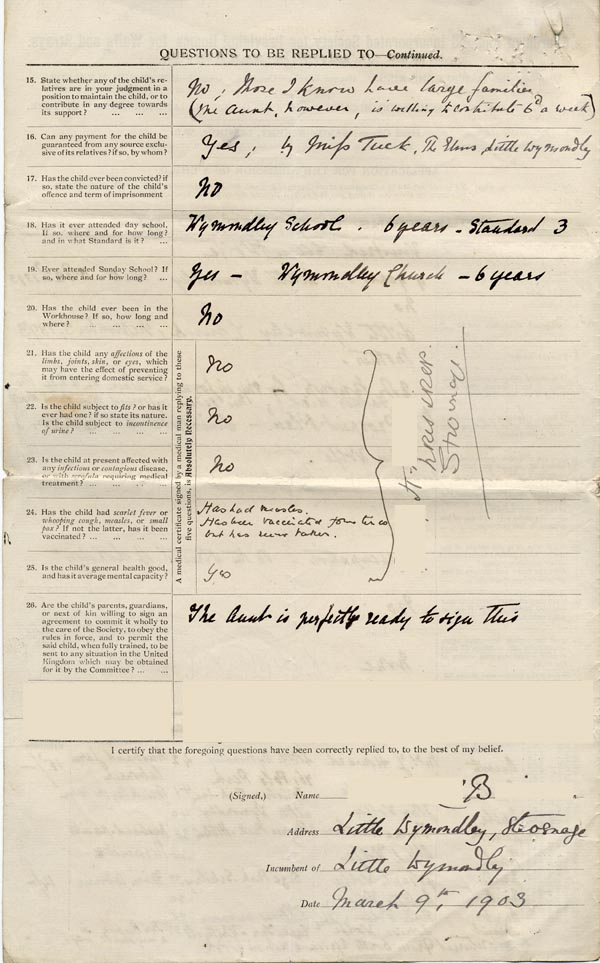 QUESTIONS TO BE REPLIED TO—Continued.
15. State whether any of the child's re-
latives are in your judgment in a
position to maintain the child, or to
contribute in any degree towards
its support? ... ... ...
No, those I know have large families
(The Aunt, however, is willing to contribute 6d a week)
16. Can any payment for the child be
guaranteed from any source exclu-
sive of its relatives? if so, by whom?
Yes; by Miss Tuck, The Elms Little Wymondley
17. Has the child ever been convicted? if
so, state the nature of the child's
offence and term of imprisonment
No
18. Has it ever attended day school.
If so, where and for how long?
and in what Standard is it? ...
Wymondley Schools. 6 years - Standard 3
19. Ever attended Sunday School? If
so, where and for how long? ...
Yes - Wymondley Church - 6 years
20. Has the child ever been in the
Workhouse? If so, how long and
where? ... ... ... ...
No
A medical certificate signed by a medical man replying to these
five questions, is Absolutely Necessary.
21. Has the child any affections of the
limbs, joints, skin, or eyes, which
may have the effect of preventing
it from entering domestic service?
No
22. Is the child subject to fits? or has it
ever had one? if so state its nature.
Is the child subject to incontinence
of urine? ... ... ... ...
No
23. Is the child at present affected with
any infectious or contagious disease,
or with scrofula requiring medical
treatment? ... ... ... ...
No
24. Has the child had scarlet fever or
whooping cough, measles, or small
pox? If not the latter, has it been
vaccinated? ... ... ... ...
Has had measles.
Has been vaccinated four times
but has never taken.
25. Is the child's general health good,
and has it average mental capacity?
Yes
26. Are the child's parents, guardians,
or next of kin willing to sign an
agreement to commit it wholly to
the care of the Society, to obey the
rules in force, and to permit the
said child, when fully trained, to be
sent to any situation in the United
Kingdom which may be obtained
for it by the Committee? ... ...
The Aunt is perfectly ready to sign this
I certify that the foregoing questions have been correctly replied to, to the best of my belief.
(Signed,) Name B
Address Little Wymondley, Stevenage
Incumbent of Little Wymondley
Date March 9th, 1903